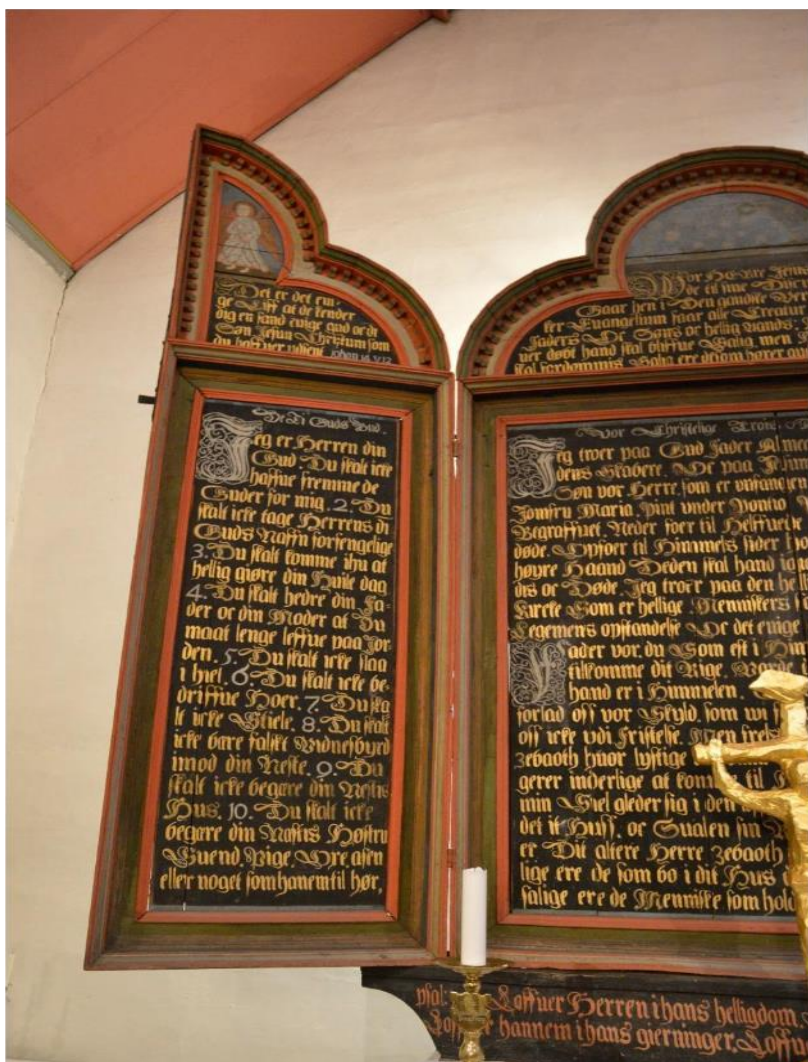 Det er det evi-
ge Liff at de kender
dig en sand evige gud oc de
Søn Jesum Christum som
du haffuer udsent. Johan
De Ti Guds Bud
Jeg er Herren din
Gud. Du skalt icke
haffue fremmede
Guder for mig. 2. Du
skalt icke tage Herrens di
Guds Naffn forfengelige
3. Du skalt komme ihu at
hellig giøre din Huile dag
4. Du skalt hedre din Fa-
der oc din Moder at Du
maat lenge leffue paa Jor
den. 5. Du skalt icke slaa
i hiel. 6. Du skalt icke be-
driffue Hoer. 7. Du ska
lt icke Stiele. 8. Du skalt
icke bære falskt Vidnesbyrd
imod din Neste. 9. Du
skalt icke begære din Nestis
Hus. 10. Du skalt icke
begære din Næstis Høstru
Suend, Pige, Oxe, asen
eller noget som hanem til hør,
Vor HErre Jesu
til sine
Gaar hen i Den gandske
ker Euangelium faar alle Creatu
Faders Oc Søns oc hellig Aands
uer døbt hand skal bliffue Salig men
skal fordømmis Salig ere de som hører
Vor Christelige Trois
Jeg troer paa Gud Fader Almec
dens Skabere. Oc paa Jesum
Søn vor Herre som er vnfangen
Jomfru Maria, Pint vnder Pontio
Begraffuet Neder foer til Helffuede
døde. Opfoer til Himmels sider
høyre Haand Deden skal hand
dis oc Døde. Jeg troer paa den he
Kircke Som er hellige Menniskers
Legemens opstandelse Oc det euige
Fader vor, du Som est i Him
tilkomme dit Rige, Vorde
hand er i Himmelen.
forlad oss vor Skyld, som wi
oss icke vdi Fristelse, Men frels
Zebaoth huor lystige
gerer inderlige at komme til
min Siel gleder sig i den
det it Huss, oc Sualen sin
er Dit altere Herre Zebaoth
lige ere de som bo i dit Hus
salige ere de Menniske som hold
psal: Loffuer Herren i hans helligdom
Loffuer hannem i hans gierninger. Loffu